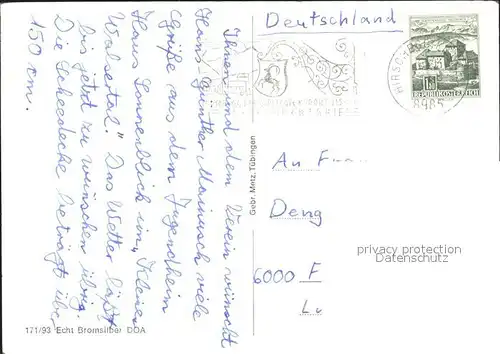 Deutschland
Ihnen und dem Verein wünscht
Hans-Günther Mainusch viele
Grüße aus dem Jugendheim
Haus Sonnenblick im „Kleine
Walsertal". Das Wetter läßt
bis jetzt zu wünschen übrig.
Die Scheedecke beträgt über
150 cm.
An Frau
Deng
6000 F
Lu
Gebr. Metz, Tübingen
171/93 Echt Bromsilber DDA
REPUBLIK ÖSTERREICH
8985
privacy protection
Datenschutz